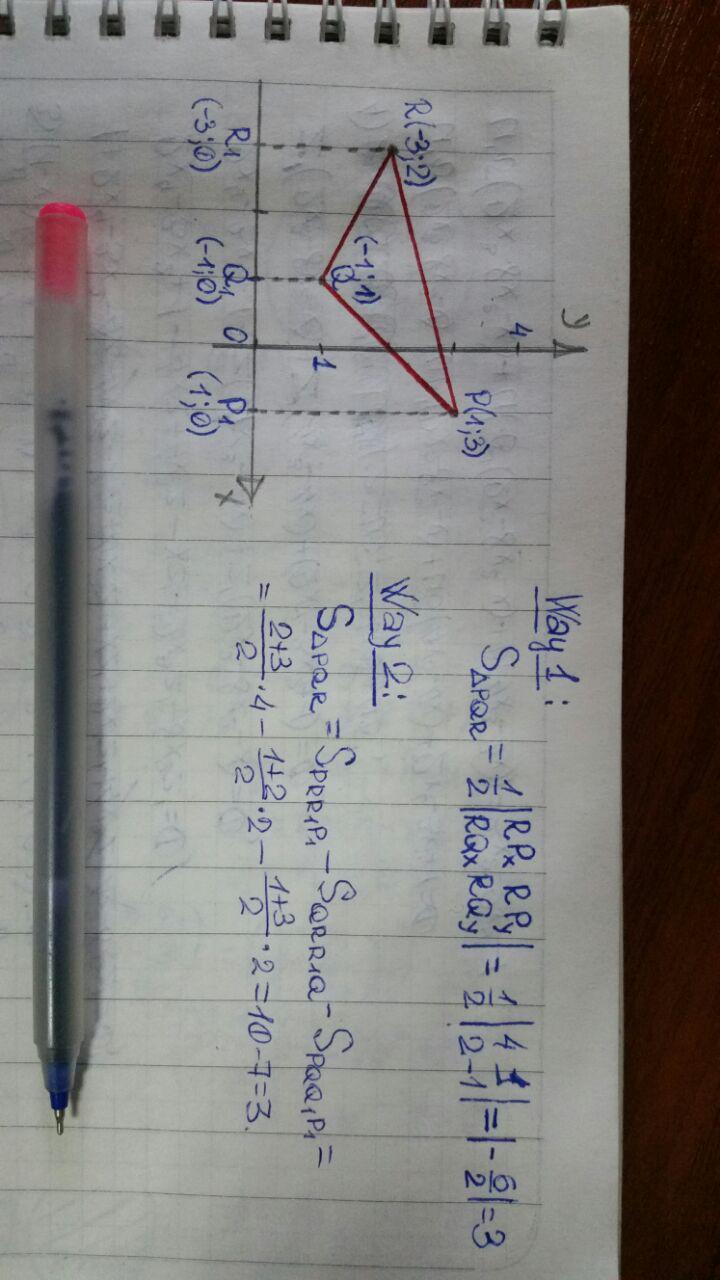 y
4
R(-3;2)
P(1;3)
(-1;1)
Q
1
R1
Q1
0
P1
x
(-3;0)
(-1;0)
(1;0)
Way 1:
S△PQR = 1/2 |RPx RPy RQx RQy| = 1/2 |4 1 2 -1| = |-6/2| = 3
Way 2:
S△PQR = SPRR1P1 - SQRR1Q - SPQQ1P1 =
= (2+3)/2 · 4 - (1+2)/2 · 2 - (1+3)/2 · 2 = 10 - 7 = 3.